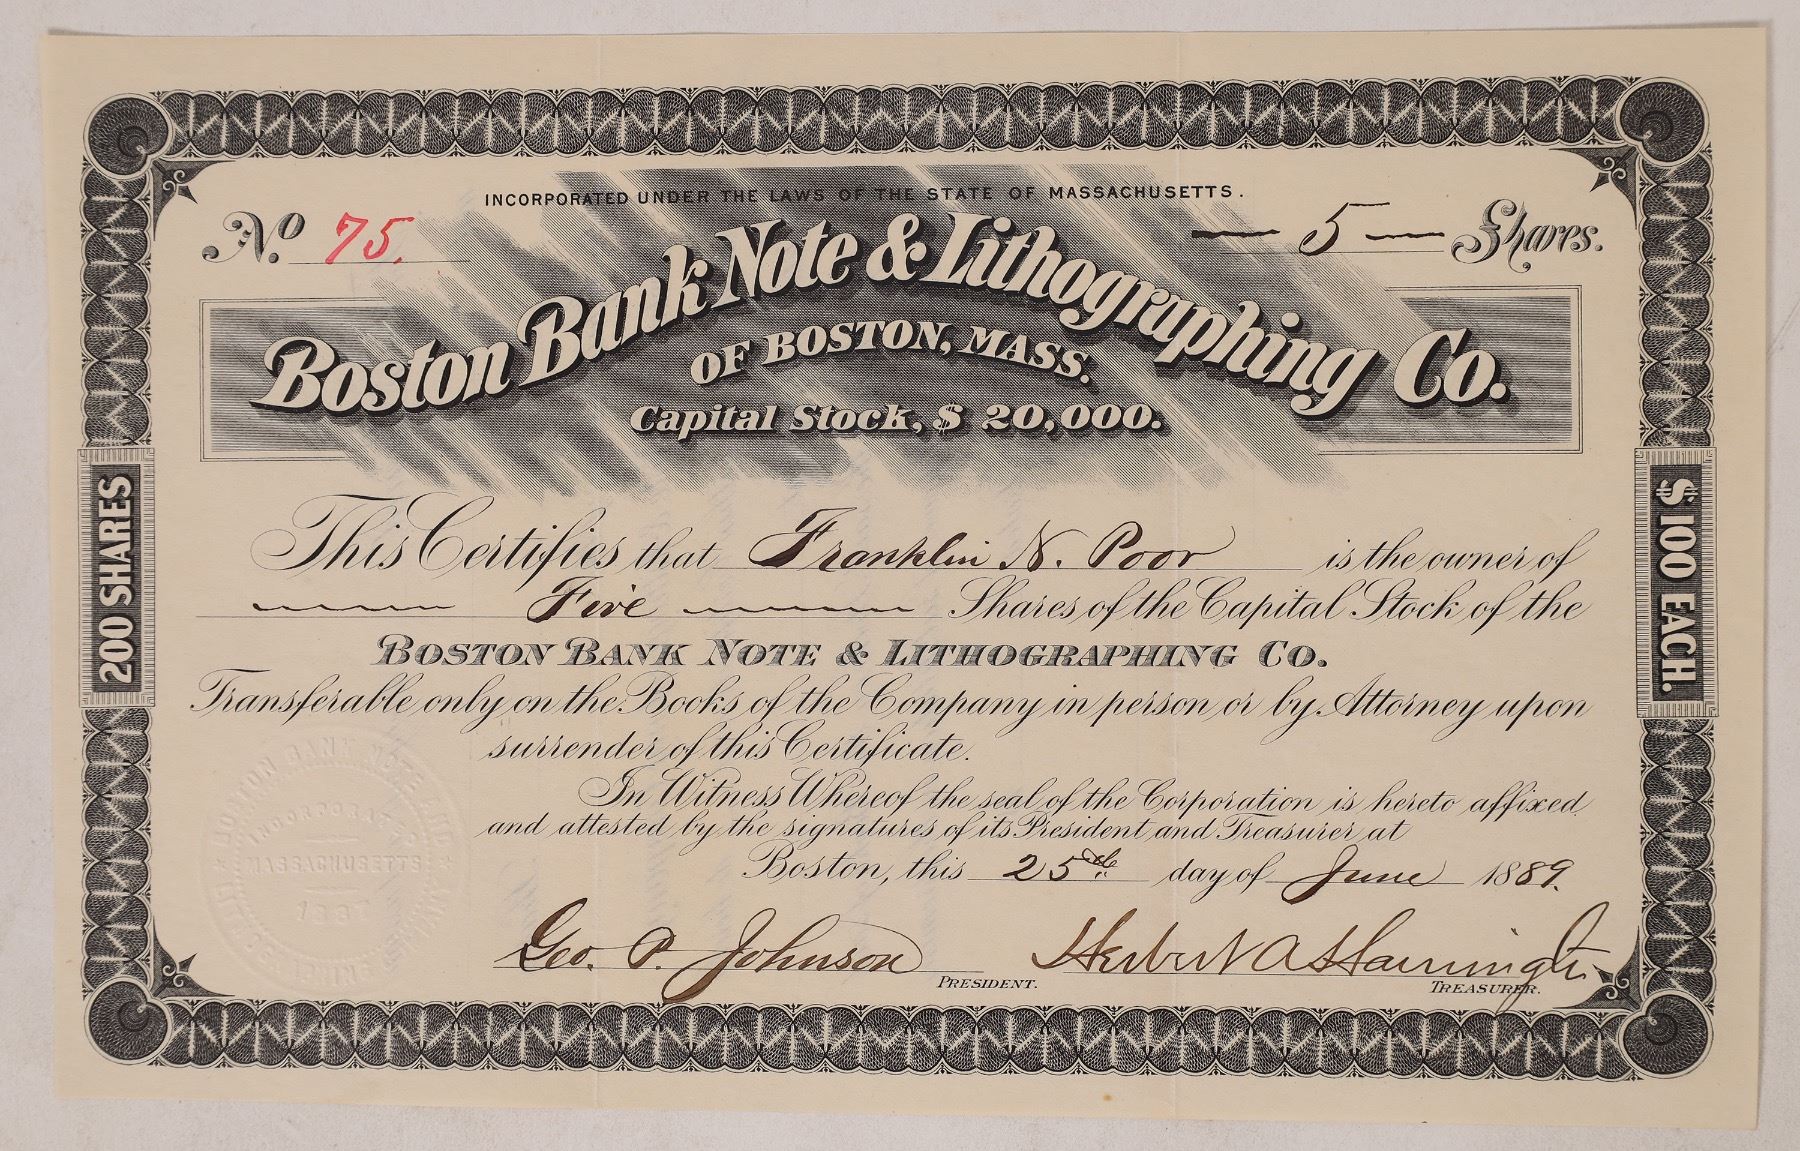 INCORPORATED UNDER THE LAWS OF THE STATE OF MASSACHUSETTS.
No. 75.
— 5 — Shares.
Boston Bank Note & Lithographing Co.
OF BOSTON, MASS.
Capital Stock, $ 20,000.
200 SHARES
$100 EACH.
This Certifies that Franklin N. Poor is the owner of
Five Shares of the Capital Stock of the
BOSTON BANK NOTE & LITHOGRAPHING CO.
Transferable only on the Books of the Company in person or by Attorney upon
surrender of this Certificate.
In Witness Whereof the seal of the Corporation is hereto affixed
and attested by the signatures of its President and Treasurer at
Boston, this 25th day of June 1889.
Geo. P. Johnson
PRESIDENT.
Herbert A Harrington
TREASURER.
BOSTON BANK NOTE AND
INCORPORATED
MASSACHUSETTS